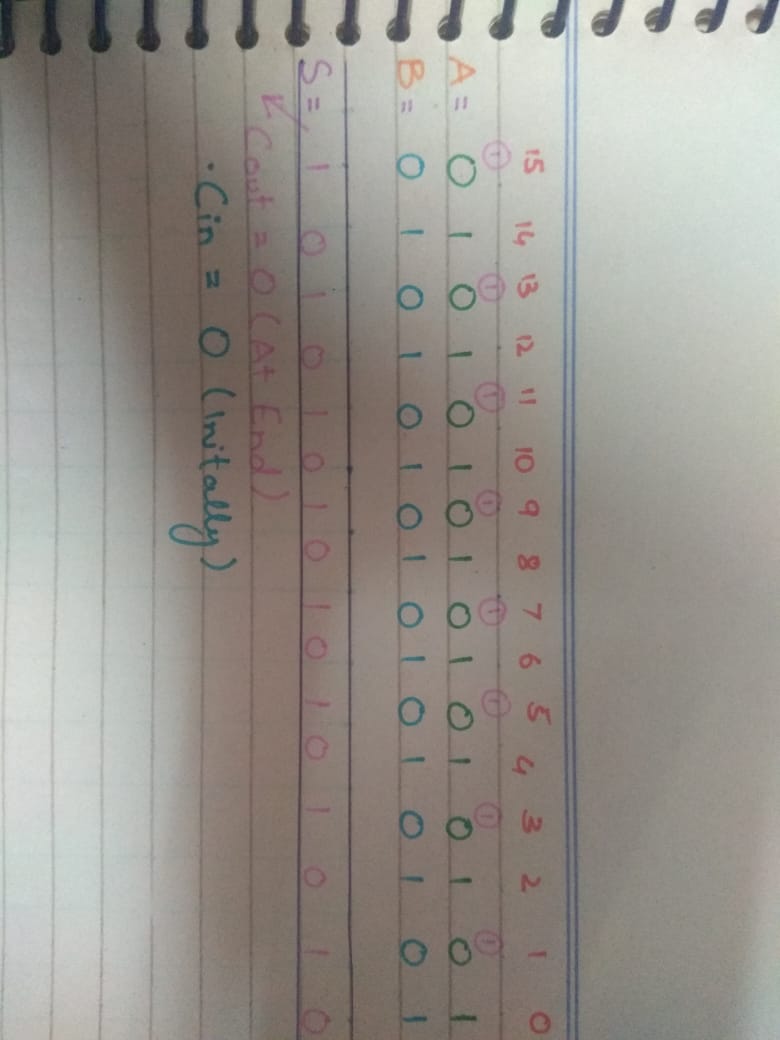 15 14 13 12 11 10 9 8 7 6 5 4 3 2 1 0
1 1 1 1 1 1 1 1
A = 0 1 0 1 0 1 0 1 0 1 0 1 0 1 0 1
B = 0 1 0 1 0 1 0 1 0 1 0 1 0 1 0 1
S = 1 0 1 0 1 0 1 0 1 0 1 0 1 0 1 0
Cout = 0 (At End)
· Cin = 0 (Initally)